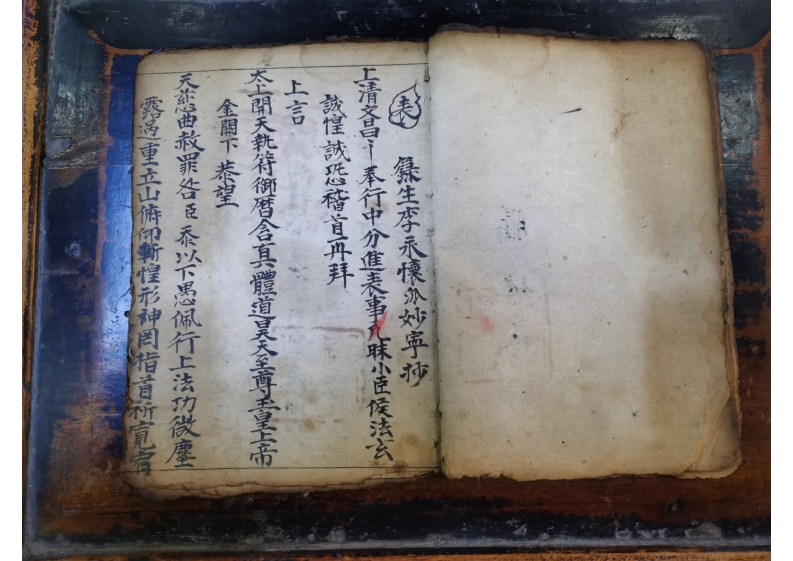 表
籙生李永懷派妙寧抄
上清文昌〻奉行中分進表事凡昧小臣侯法玄
誠惶誠恐稽首再拜
上言
太上開天執符御曆含真體道昊天至尊玉皇上帝
金闕下 恭望
天慈曲赦罪咎臣忝以下愚佩行上法功微塵
露過重丘山俯仰慚惶形神罔措首祈寬宥